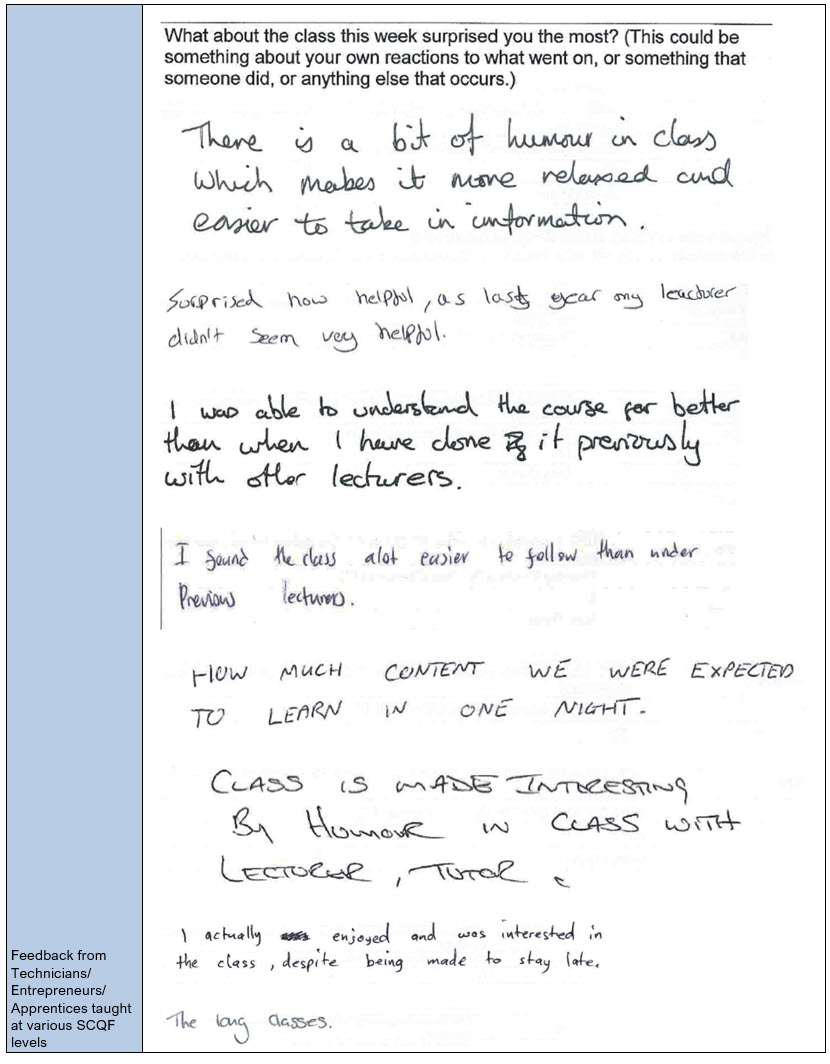 What about the class this week surprised you the most? (This could be
something about your own reactions to what went on, or something that
someone did, or anything else that occurs.)
There is a bit of humour in class
which makes it more relaxed and
easier to take in information.
Surprised how helpful, as last year my leacturer
didn't seem vey helpful.
I was able to understand the course far better
than when I have done it previously
with other lecturers.
I found the class alot easier to follow than under
Previous lecturers.
HOW MUCH CONTENT WE WERE EXPECTED
TO LEARN IN ONE NIGHT.
CLASS IS MADE INTERESTING
By HUMOUR IN CLASS WITH
LECTURER, TUTOR.
I actually enjoyed and was interested in
the class, despite being made to stay late.
The long classes.
Feedback from
Technicians/
Entrepreneurs/
Apprentices taught
at various SCQF
levels